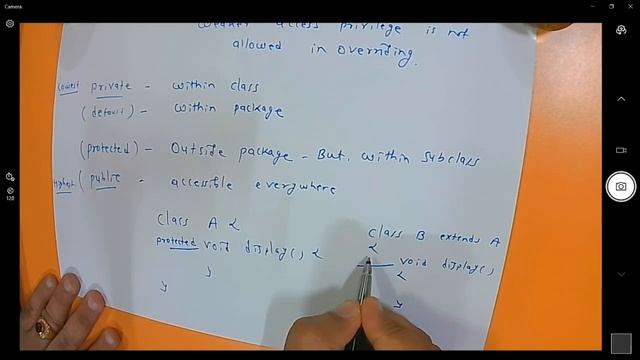 Camera
weaker access privilege is not
allowed in overriding.
Lowest private - within class
(default) - within package
(protected) - Outside package - But, within subclass
Highest (public - accessible everywhere
class A {
protected void display() {
}
}
class B extends A
{
void display()
{
}
128